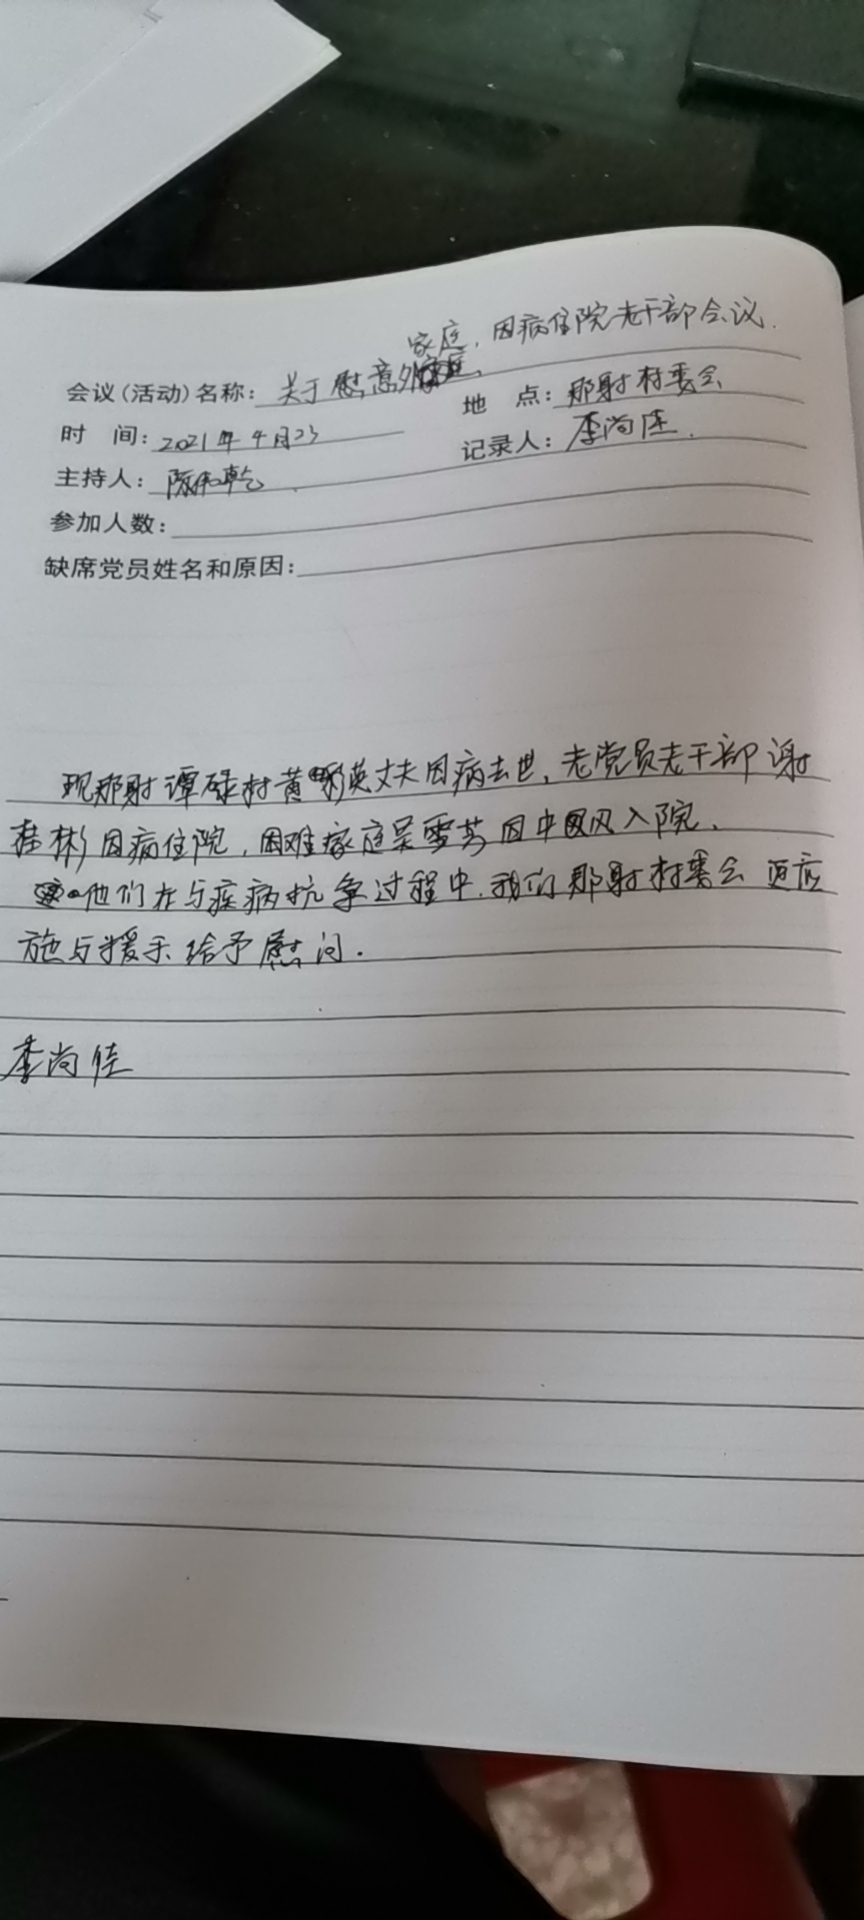 家庭，因病住院老干部会议.
会议(活动)名称: 关于慰意外
地 点: 那射村委会
时 间: 2021年4月23
记录人: 李尚佳.
主持人: 陈 乾
参加人数:
缺席党员姓名和原因:
现那射谭碌村黄 英丈夫因病去世，老党员老干部谢
桂彬因病住院，困难家庭吴雪芬因中风入院.
他们在与疾病抗争过程中.我们那射村委会 应
施与援手给予慰问.
李尚佳